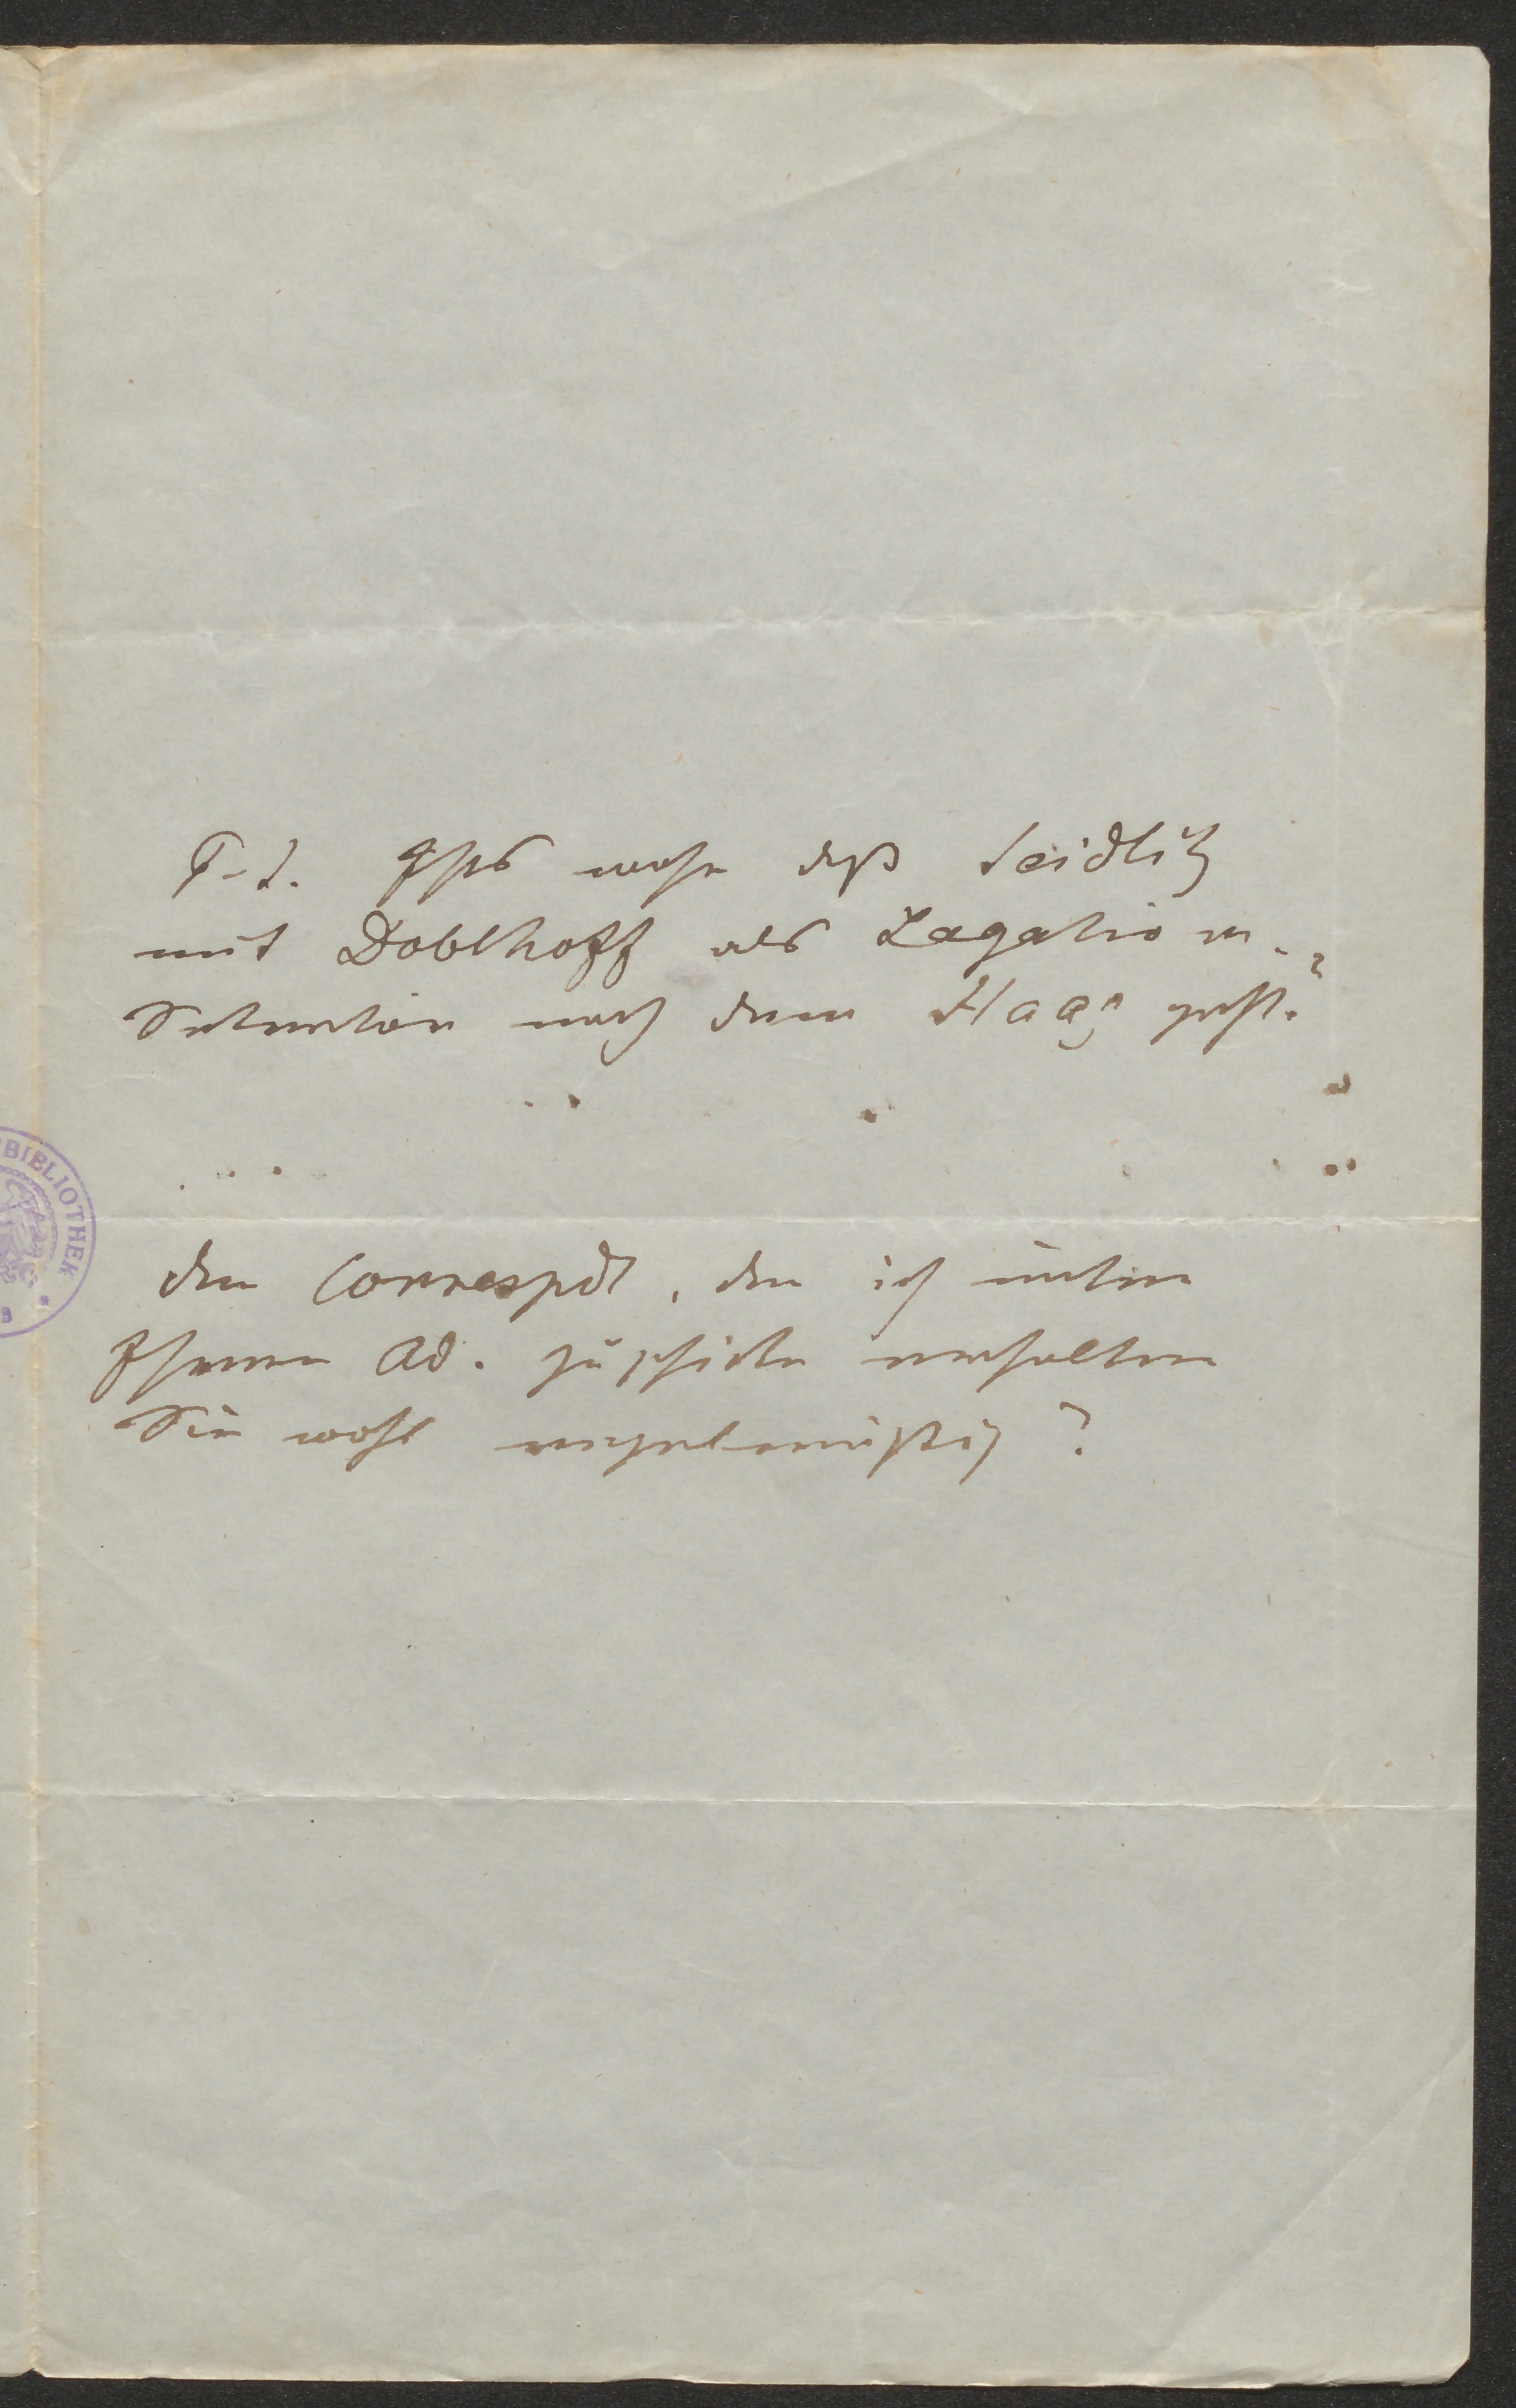 P.S. Ists wahr daß Seidlitz
mit Doblhoff als Legations-
Sekretär nach dem Haag geht?
Den Correspdt, den ich unter
Ihrer Ad. zuschicke erhalten
Sie wohl regelmäßig?
BIBLIOTHEK